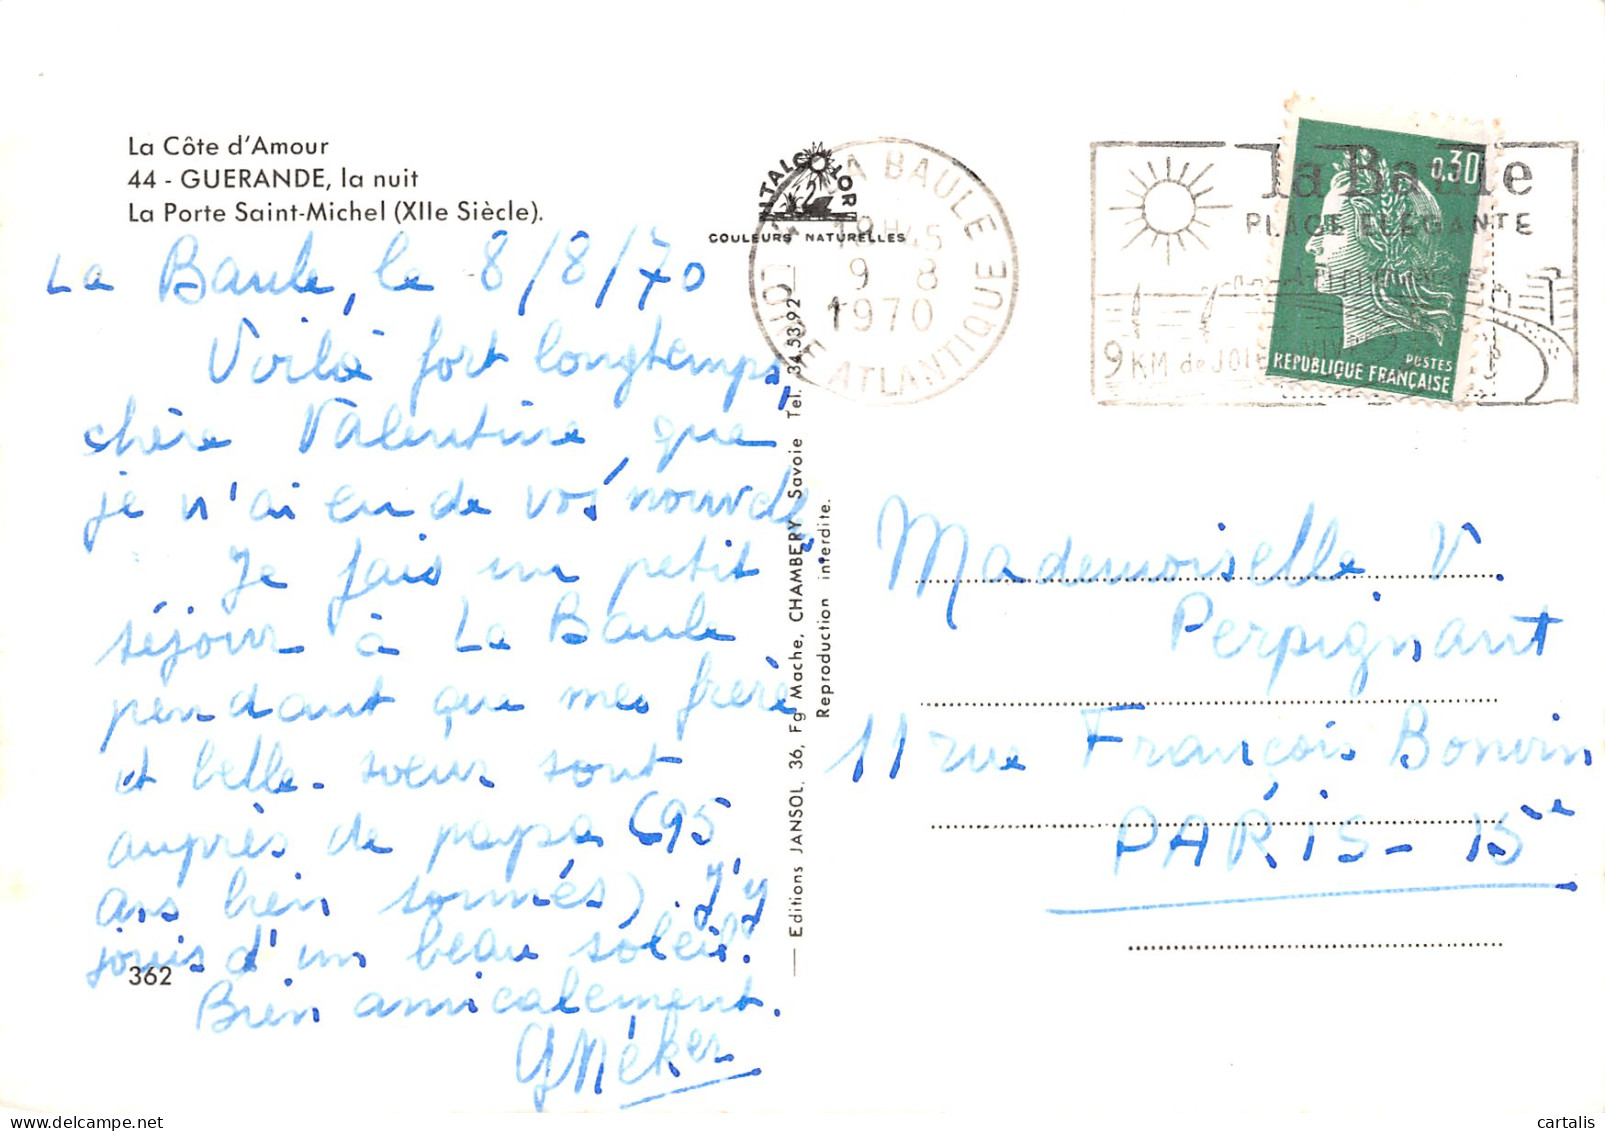 La Côte d'Amour
44 - GUERANDE, la nuit
La Porte Saint-Michel (XIIe Siècle).
COULEURS NATURELLES
LA BAULE
18H45
9 8
1970
LOIRE ATLANTIQUE
la Baule
PLAGE ELEGANTE
9 KM de JOIE
0,30
POSTES
REPUBLIQUE FRANÇAISE
La Baule, le 8/8/70
Voilà fort longtemps,
chère Valentine, que
je n'ai eu de vos nouvelles
Je fais un petit
séjour à La Baule
pendant que mes frère
et belle-sœur sont
auprès de papa (95
ans bien sonnés). J'y
jouis d'un beau soleil.
Bien amicalement.
362
Editions JANSOL, 36, Fg Mache, CHAMBERY Savoie Tel. 34.53.92
Reproduction interdite.
Mademoiselle V.
Perpignant
11 rue François Bonvin
PARIS - 15e
cartalis